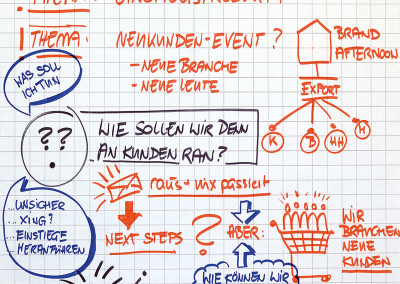 THEMA:
NEUKUNDEN-EVENT?
- NEUE BRANCHE
- NEUE LEUTE
BRAND
AFTERNOON
WAS SOLL
ICH TUN
EXPORT
K
B
HH
M
??
WIE SOLLEN WIR DENN
AN KUNDEN RAN?
raus + nix passiert
...UNSICHER
...XING?
...EINSTIEGE
...HERANFÜHREN
NEXT STEPS
?
ABER:
WIR
BRAUCHEN
NEUE
KUNDEN
WIE KÖNNEN WIR